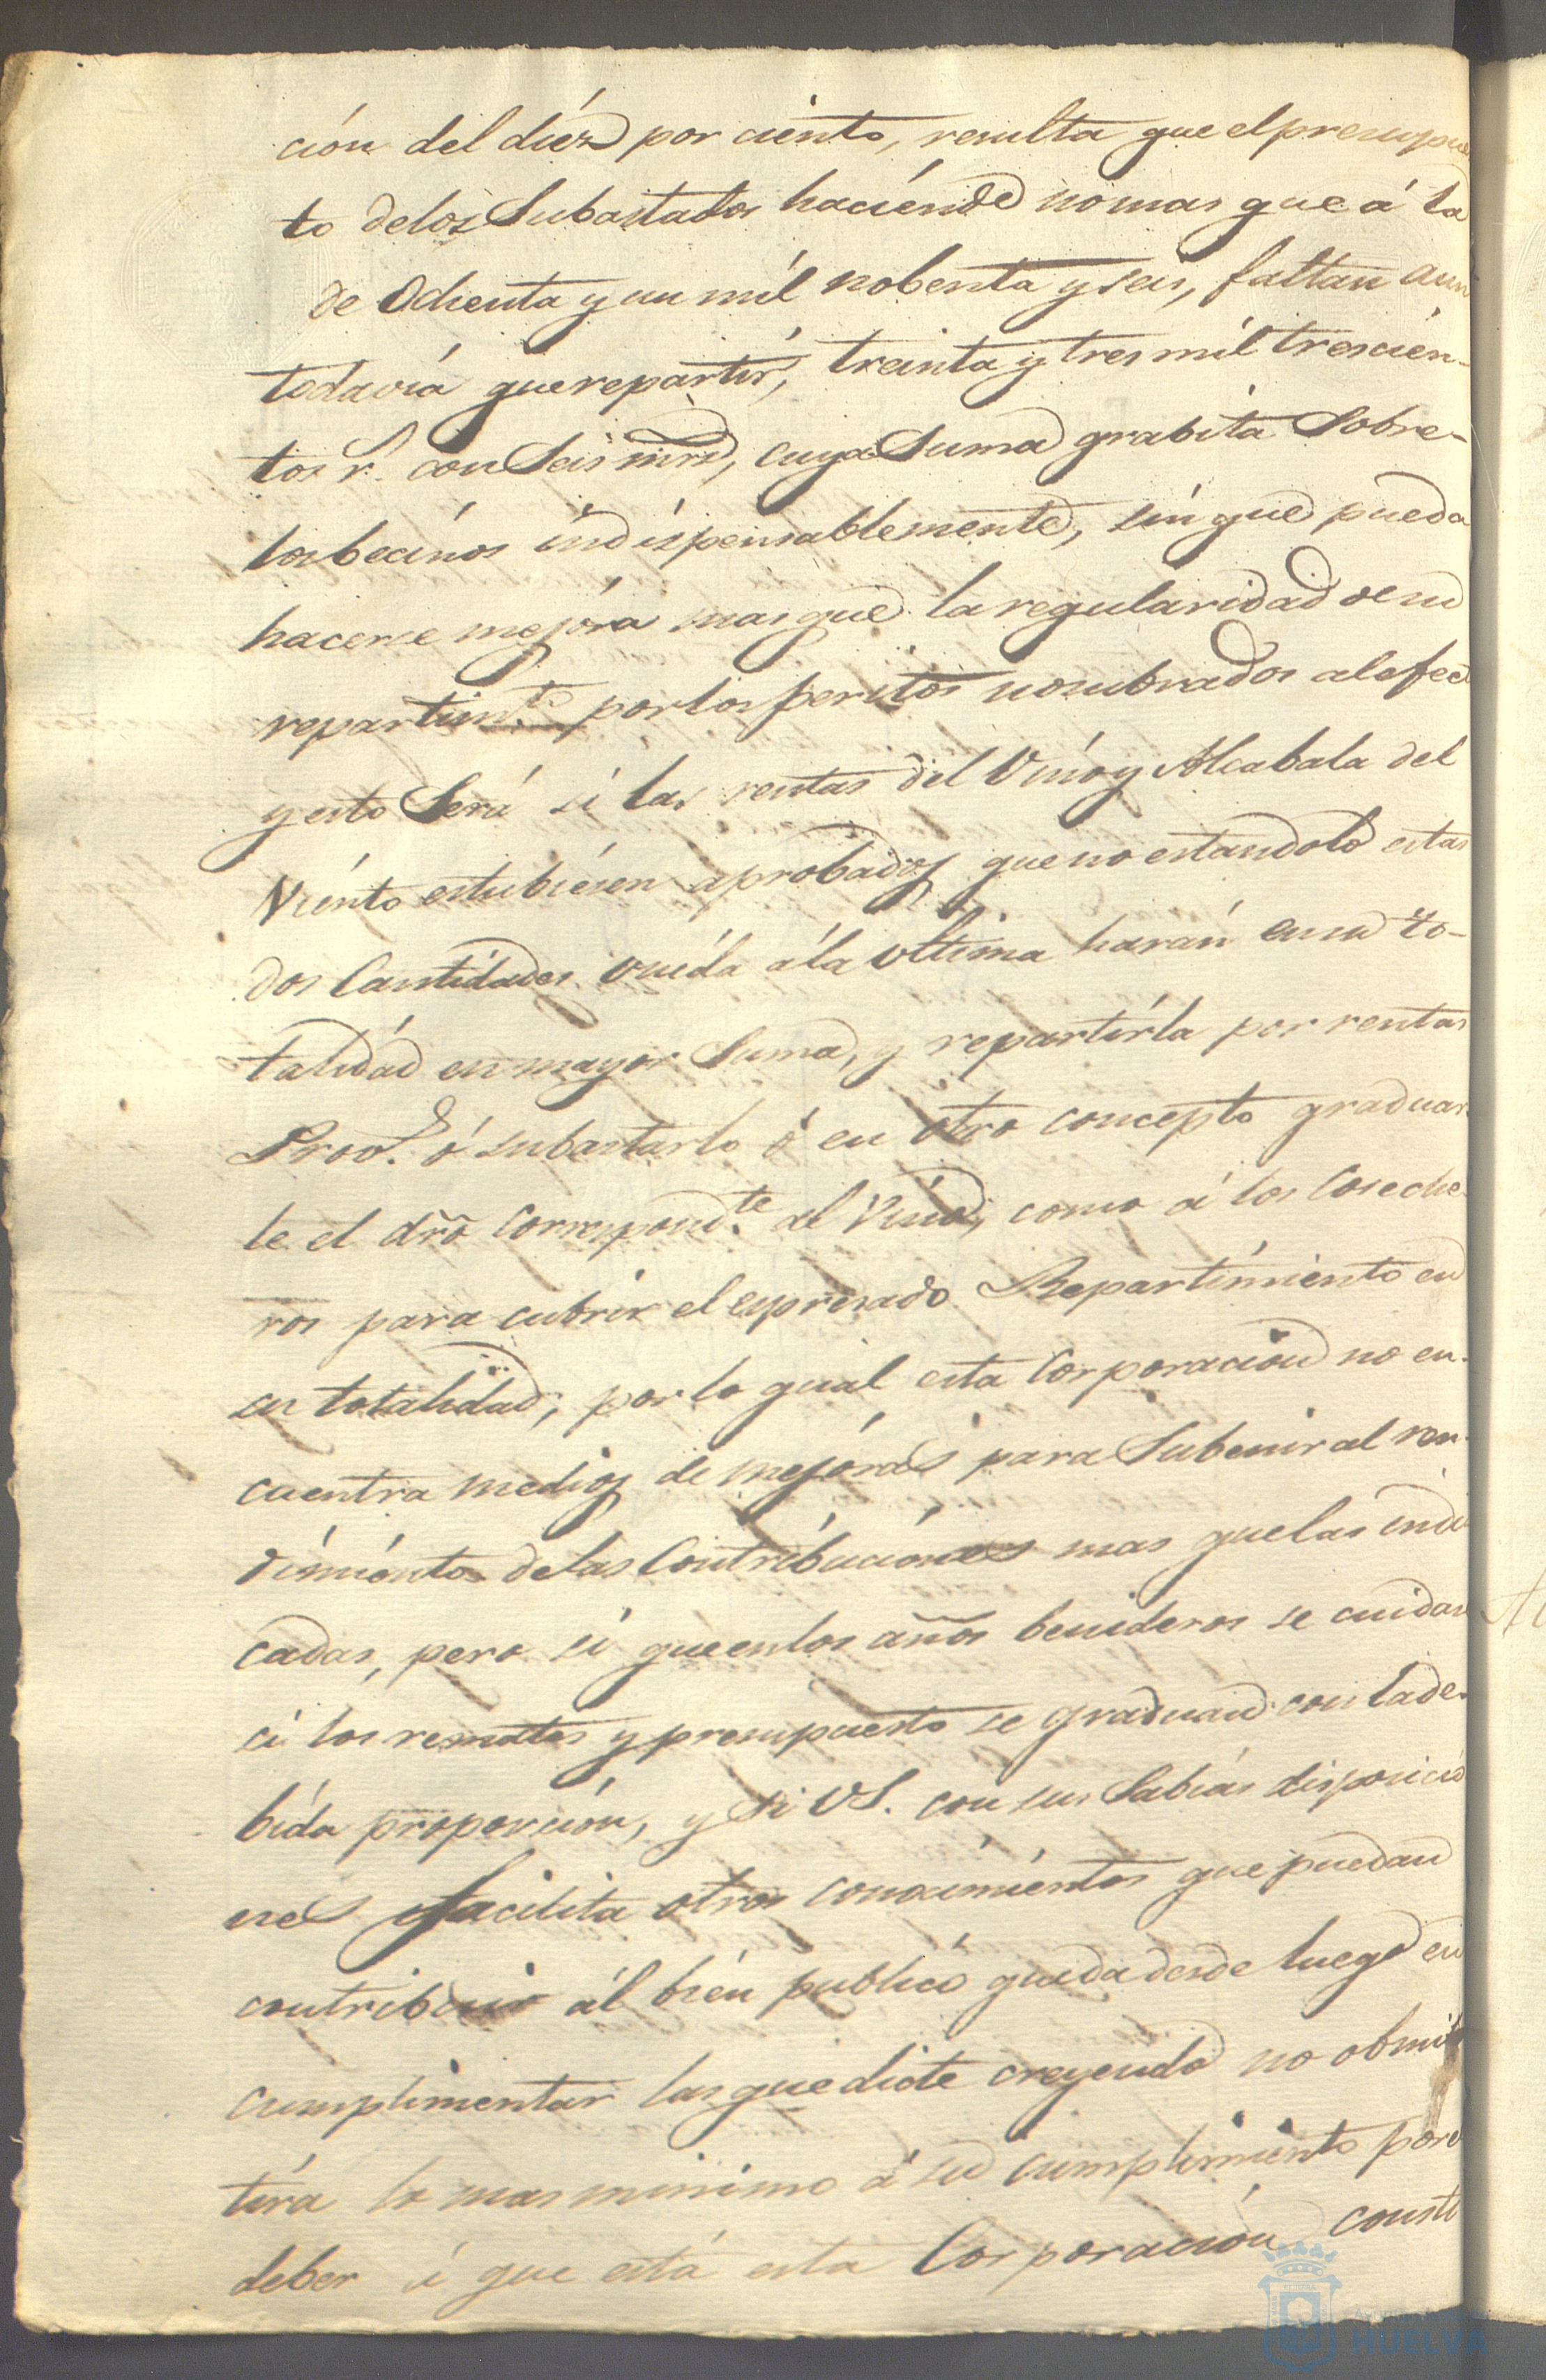 ción del diéz por ciento, resulta que el presupues
to de los Subastados haciénde no mas que á la
de Ochenta y un mil nobenta y seis, faltan aun
todavía que repartir, treinta y tres mil trescién-
tos r.s con Seis mrs, cuya Suma grabita Sobre-
los becinos indispensablemente, sin que pueda
hacerse mejóra mas que la regularidad de su
repartim.to por los peritos nombrados al efect
y esto Será si las rentas del Vino y Alcabala del
Viénto estubiésen aprobados que no estandolo estas
dos Cantidades unida á la última harán en su to-
talidad en mayor Suma, y repartirla por rentas
Prov.s ó subastarlo ó en otro concepto graduar
le el dro correspond.te al Vino, como á los Coseche
ros para cubrir el espresado Repartimiento en
su totalidad, por lo qual esta Corporacion no en-
cuentra medios de mejóras para Subenir al ren-
dimiénto de las Contribuciónes mas que las indi
cadas, pero si que en los años benideros se cuidará
si los remates y presupuesto se graduan con la de-
bida proporción, y si VS. con sus Sabias disposicio
nes facilita otros conocimiéntos que puedan
contribuir ál bién publicó queda desde luego en
cumplimentar las que dicte creyendo no obmi
tirá lo mas minimo á su cumplimiento por el
deber á que está esta Corporación consti
HUELVA